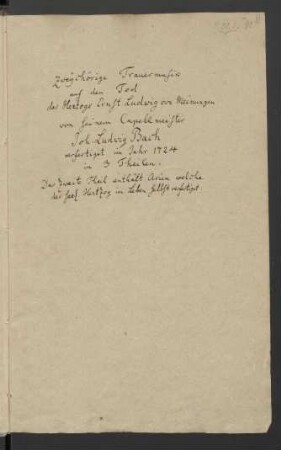 Zweychörige Trauermusic
auf den Tod
des Herzogs Ernst Ludwig von Meiningen
von seinem Capellmeister
Joh. Ludwig Bach
verfertiget im Jahr 1724
in 3 Theilen.
Der zweite Theil enthält Arien welche
der seel. Herzog im Leben selbst verfertiget